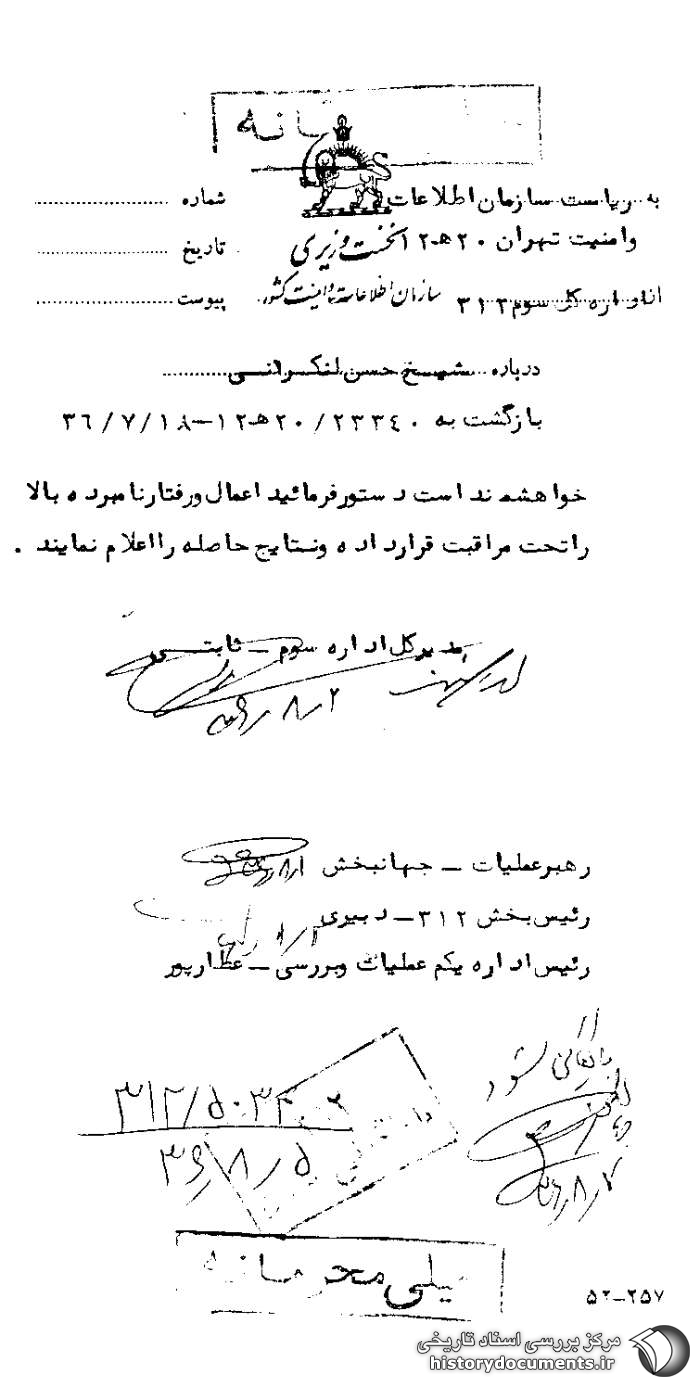 به ریاست سازمان اطلاعات
شماره
وامنیت تهران ۲۰هـ۱۲
نخست وزیری
تاریخ
سازمان اطلاعات و امنیت کشور
از اداره کل سوم ۳۱۲
پیوست
درباره شیخ حسن لنکرانی
بازگشت به ۲۳۳٤۰/۲۰هـ۱۲-۳٦/۷/۱۸
خواهشمند است دستور فرمائید اعمال ورفتار نامبرده بالا
راتحت مراقبت قرار داده ونتایج حاصله رااعلام نمایند .
مدیرکل اداره سوم ـ ثابتی
رهبرعملیات ـ جهانبخش
رئیس بخش ۳۱۲ـ دبیری
رئیس اداره یکم عملیات وبررسی ـ عطارپور
بایگانی شود
۳۱۲/۵۰۳۲
۳۶/۸/۵
خیلی محرمانه
۵۲-۲۵۷
مرکز بررسی اسناد تاریخی
historydocuments.ir